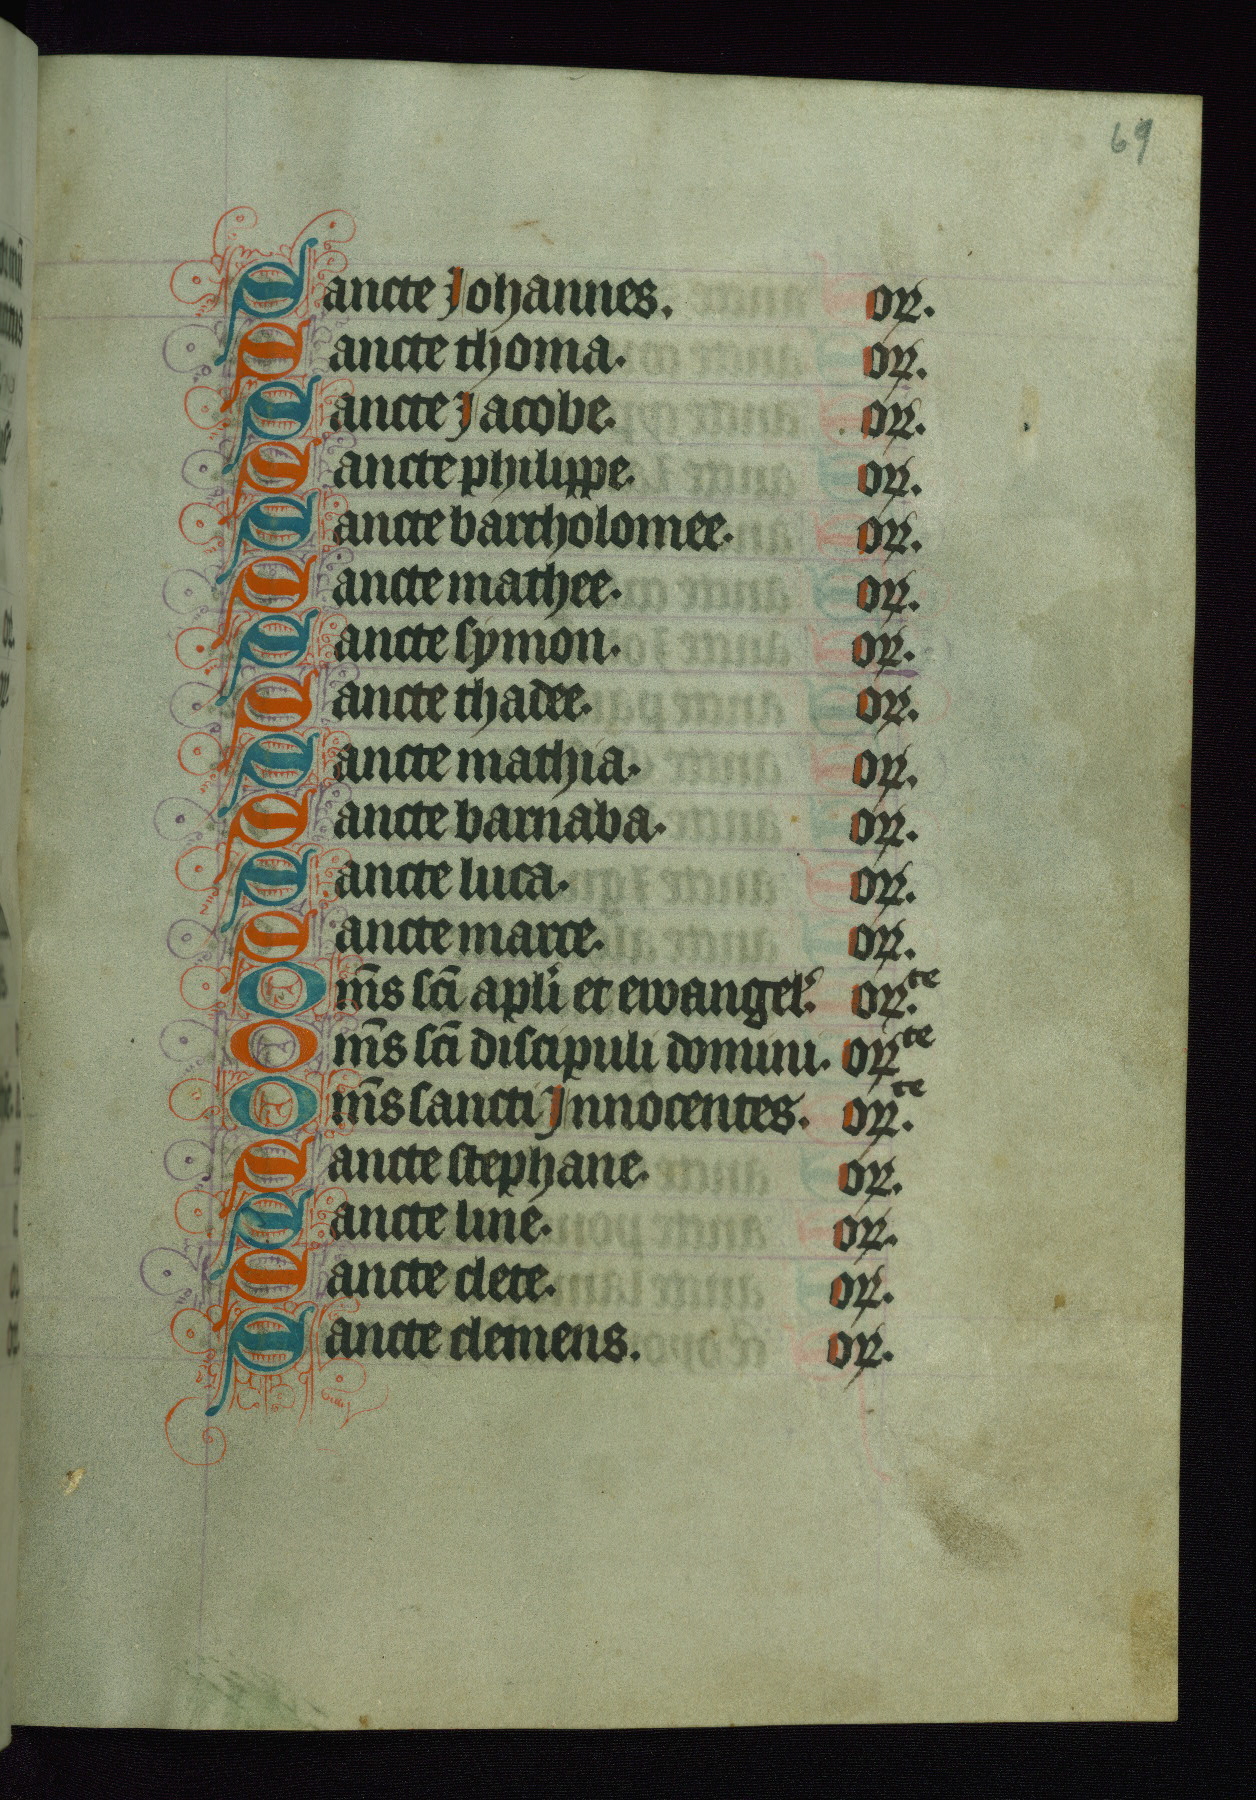 69
Sancte Johannes. or.
Sancte thoma. or.
Sancte Jacobe. or.
Sancte philippe. or.
Sancte bartholomee. or.
Sancte mathee. or.
Sancte symon. or.
Sancte thadee. or.
Sancte mathia. or.
Sancte barnaba. or.
Sancte luca. or.
Sancte marce. or.
Om̄s sc̄i apl̄i et ewangel'. or.te
Om̄s sc̄i discipuli domini. orte
Om̄s sancti Innocentes. or.te
Sancte stephane. or.
Sancte line. or.
Sancte clete. or.
Sancte clemens. or.